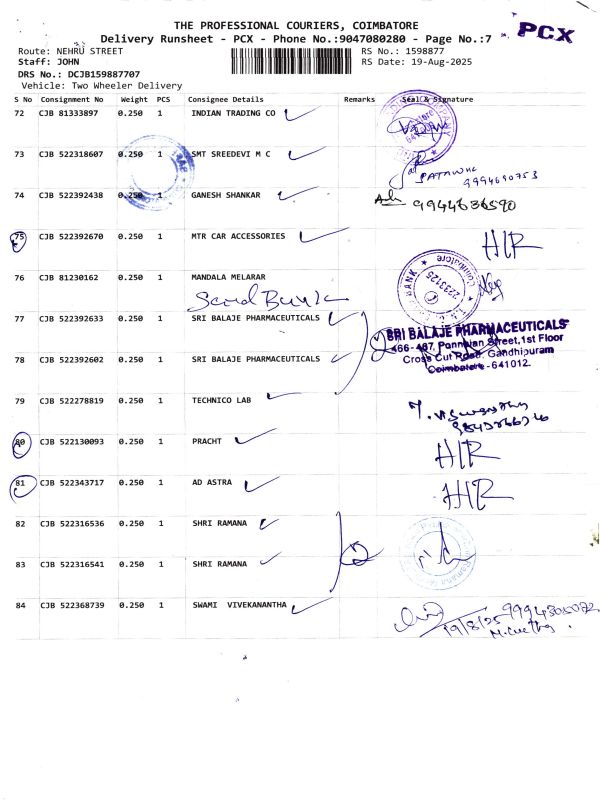 THE PROFESSIONAL COURIERS, COIMBATORE
PCX
Delivery Runsheet - PCX - Phone No.:9047080280 - Page No.:7
Route: NEHRU STREET
RS No.: 1598877
Staff: JOHN
RS Date: 19-Aug-2025
DRS No.: DCJB159887707
Vehicle: Two Wheeler Delivery
S No Consignment No Weight PCS Consignee Details Remarks Seal & Signature
72 CJB 81333897 0.250 1 INDIAN TRADING CO
73 CJB 522318607 0.250 1 SMT SREEDEVI M C
9994690753
74 CJB 522392438 0.250 1 GANESH SHANKAR
9944636590
75 CJB 522392670 0.250 1 MTR CAR ACCESSORIES
76 CJB 81230162 0.250 1 MANDALA MELARAR
BANK
Coimbatore
2233125
77 CJB 522392633 0.250 1 SRI BALAJE PHARMACEUTICALS
SRI BALAJE PHARMACEUTICALS
466-467, Ponnaian Street,1st Floor
Cross Cut Road, Gandhipuram
Coimbatore - 641012.
78 CJB 522392602 0.250 1 SRI BALAJE PHARMACEUTICALS
79 CJB 522278819 0.250 1 TECHNICO LAB
80 CJB 522130093 0.250 1 PRACHT
81 CJB 522343717 0.250 1 AD ASTRA
82 CJB 522316536 0.250 1 SHRI RAMANA
83 CJB 522316541 0.250 1 SHRI RAMANA
84 CJB 522368739 0.250 1 SWAMI VIVEKANANTHA
19/8/25